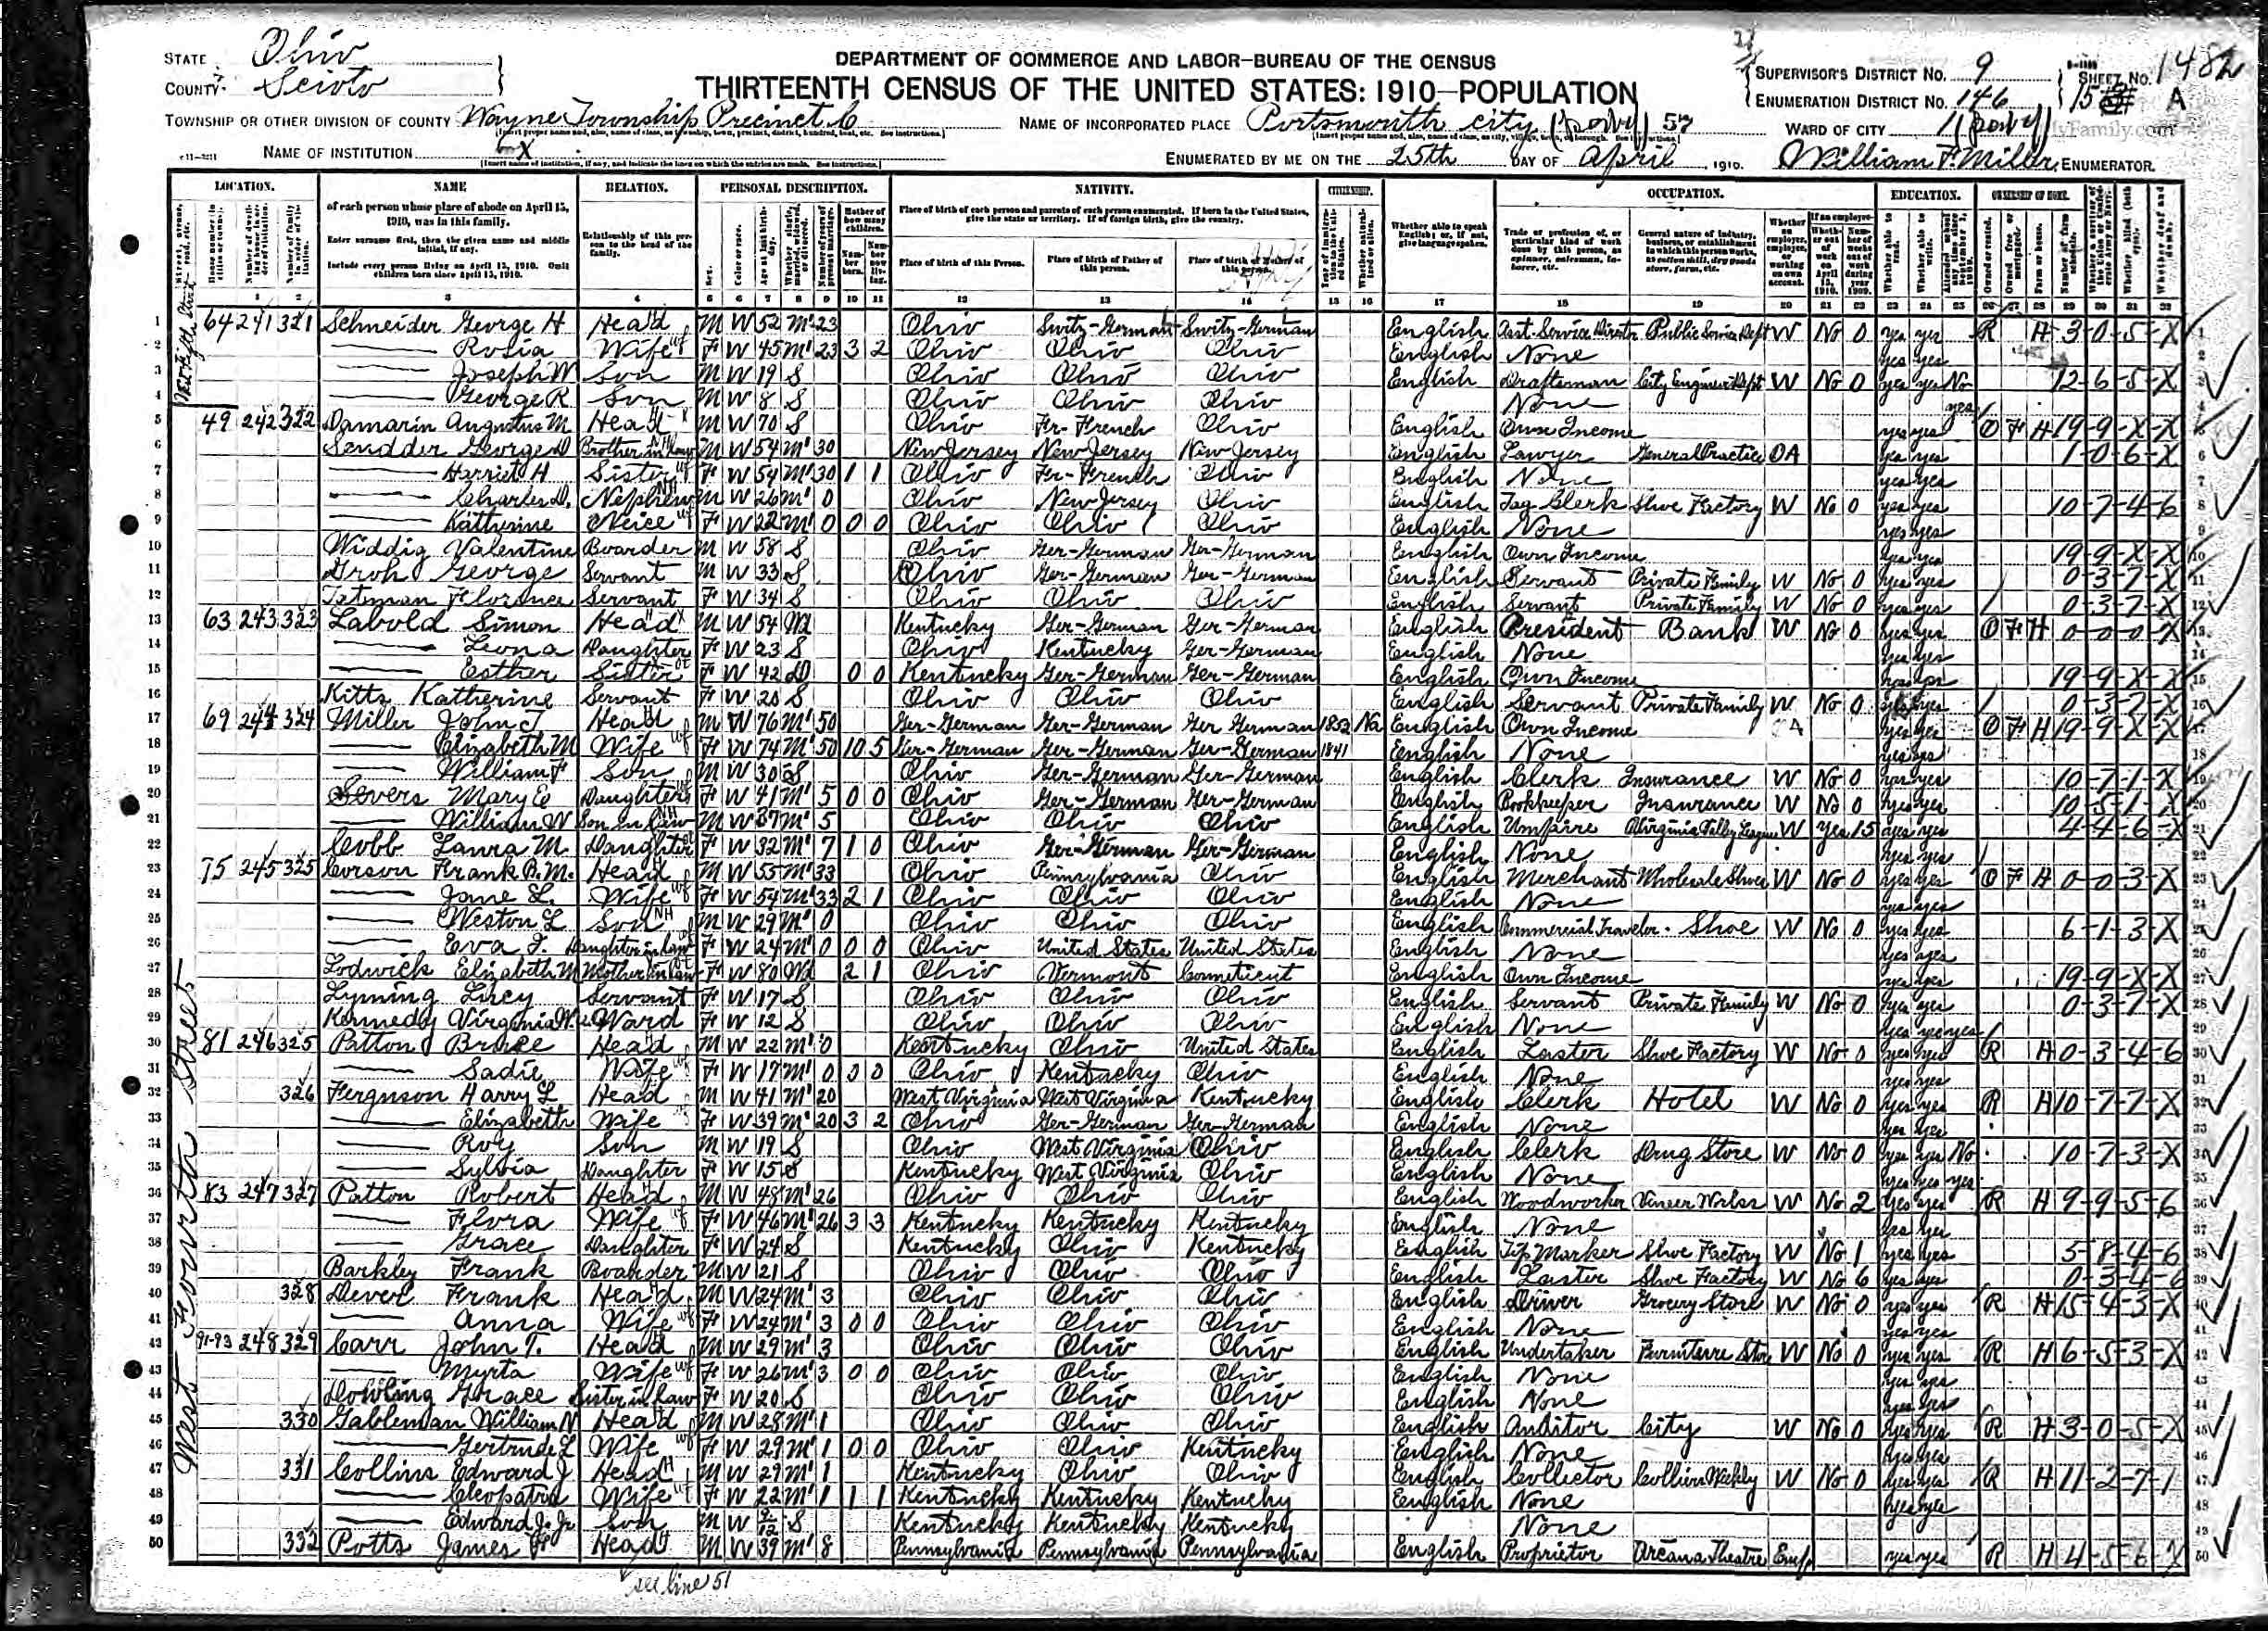 STATE Ohio
COUNTY Scioto
DEPARTMENT OF COMMERCE AND LABOR—BUREAU OF THE CENSUS
THIRTEENTH CENSUS OF THE UNITED STATES: 1910—POPULATION
SUPERVISOR'S DISTRICT No. 9
ENUMERATION DISTRICT No. 146
SHEET No. 15 A
1482
TOWNSHIP OR OTHER DIVISION OF COUNTY Wayne Township Precinct C
NAME OF INCORPORATED PLACE Portsmouth city
WARD OF CITY 1
MyFamily.com
NAME OF INSTITUTION X
ENUMERATED BY ME ON THE 25th DAY OF April, 1910. William F. Miller, ENUMERATOR.
LOCATION. NAME RELATION. PERSONAL DESCRIPTION. NATIVITY. CITIZENSHIP. OCCUPATION. EDUCATION. OWNERSHIP OF HOME.
of each person whose place of abode on April 15, 1910, was in this family.
Enter surname first, then the given name and middle initial, if any.
Include every person living on April 15, 1910. Omit children born since April 15, 1910.
Relationship of this person to the head of the family.
Place of birth of each person and parents of each person enumerated. If born in the United States, give the state or territory. If of foreign birth, give the country.
Place of birth of this Person. Place of birth of Father of this person. Place of birth of Mother of this person.
Whether able to speak English; or, if not, give language spoken.
West Fourth Street
1 64 241 321 Schneider George H Head M W 52 M1 23 Ohio Switz-German Switz-German English Public Service Dept W No 0 yes yes R H 3-0-5-X
2 Rosia Wife F W 45 M1 23 3 2 Ohio Ohio Ohio English None yes yes
3 Joseph W Son M W 19 S Ohio Ohio Ohio English Draftsman City Engineer Dept W No 0 yes yes No 12-6-5-X
4 George R Son M W 8 S Ohio Ohio Ohio None yes
5 49 242 322 Damarin Augustus M Head M W 70 S Ohio Fr-French Ohio English Own Income yes yes O F H 19-9-X-X
6 Scudder George D Brother in law M W 54 M1 30 New Jersey New Jersey New Jersey English Lawyer General Practice OA yes yes 1-0-6-X
7 Harriet H Sister F W 54 M1 30 1 1 Ohio Fr-French Ohio English None yes yes
8 Charles D. Nephew M W 26 M1 0 Ohio New Jersey Ohio English Tag Clerk Shoe Factory W No 0 yes yes 10-7-4-6
9 Katherine Neice F W 22 M1 0 0 0 Ohio Ohio Ohio English None yes yes
10 Widdig Valentine Boarder M W 58 S Ohio Ger-German Ger-German English Own Income yes yes 19-9-X-X
11 Droh George Servant M W 33 S Ohio Ger-German Ger-German English Servant Private Family W No 0 yes yes 0-3-7-X
12 Tatman Florence Servant F W 34 S Ohio Ohio Ohio English Servant Private Family W No 0 yes yes 0-3-7-X
13 63 243 323 Labold Simon Head M W 54 Wd Kentucky Ger-German Ger-German English President Bank W No 0 yes yes O F H 0-0-0-X
14 Leona Daughter F W 23 S Ohio Kentucky Ger-German English None yes yes
15 Esther Sister F W 42 D 0 0 Kentucky Ger-German Ger-German English Own Income yes yes 19-9-X-X
16 Kitts Katherine Servant F W 20 S Ohio Ohio Ohio English Servant Private Family W No 0 yes yes 0-3-7-X
17 69 244 324 Miller John J Head M W 76 M1 50 Ger-German Ger-German Ger German 1852 Na English Own Income yes yes O F H 19-9-X-X
18 Elizabeth M Wife F W 74 M1 50 10 5 Ger-German Ger-German Ger-German 1841 English None yes yes
19 William F Son M W 30 S Ohio Ger-German Ger-German English Clerk Insurance W No 0 yes yes 10-7-1-X
20 Severs Mary E Daughter F W 41 M1 5 0 0 Ohio Ger-German Ger-German English Bookkeeper Insurance W No 0 yes yes 10-5-1-X
21 William W Son in law M W 37 M1 5 Ohio Ohio Ohio English Umpire Virginia Valley League W yes 15 yes yes 4-4-6-X
22 Cobb Laura M. Daughter F W 32 M1 7 1 0 Ohio Ger-German Ger-German English None yes yes
23 75 245 325 Corson Frank B. M. Head M W 55 M1 33 Ohio Pennsylvania Ohio English Merchant Wholesale Shoes W No 0 yes yes O F H 0-0-3-X
24 Jane L. Wife F W 54 M1 33 2 1 Ohio Ohio Ohio English None yes yes
25 Weston L Son M W 29 M1 0 Ohio Ohio Ohio English Commercial Traveler Shoe W No 0 yes yes 6-1-3-X
26 Eva F. Daughter in law F W 24 M1 0 0 0 Ohio United States United States English None yes yes
27 Lodwick Elizabeth M Mother in law F W 80 Wd 2 1 Ohio Vermont Conneticut English Own Income yes yes 19-9-X-X
28 Lyming Lucy Servant F W 17 S Ohio Ohio Ohio English Servant Private Family W No 0 yes yes 0-3-7-X
29 Kennedy Virginia W. Ward F W 12 S Ohio Ohio Ohio English None yes yes yes
30 81 246 325 Patton Bruce Head M W 22 M1 0 Kentucky Ohio United States English Laster Shoe Factory W No 0 yes yes R H 0-3-4-6
31 Sadie Wife F W 17 M1 0 0 0 Ohio Kentucky Ohio English None yes yes
32 326 Ferguson Harry L Head M W 41 M1 20 West Virginia West Virginia Kentucky English Clerk Hotel W No 0 yes yes R H 10-7-7-X
33 Elizabeth Wife F W 39 M1 20 3 2 Ohio Ger-German Ger-German English None yes yes
34 Roy Son M W 19 S Ohio West Virginia Ohio English Clerk Drug Store W No 0 yes yes No 10-7-3-X
35 Sylvia Daughter F W 15 S Kentucky West Virginia Ohio English None yes yes yes
36 83 247 327 Patton Robert Head M W 48 M1 26 Ohio Ohio Ohio English Woodworker Veneer Works W No 2 yes yes R H 9-9-5-6
37 Flora Wife F W 46 M1 26 3 3 Kentucky Kentucky Kentucky English None yes yes
38 Grace Daughter F W 24 S Kentucky Ohio Kentucky English Tip Marker Shoe Factory W No 1 yes yes 5-8-4-6
39 Barkley Frank Boarder M W 21 S Ohio Ohio Ohio English Laster Shoe Factory W No 6 yes yes 0-3-4-6
40 328 Dever Frank Head M W 24 M1 3 Ohio Ohio Ohio English Driver Grocery Store W No 0 yes yes R H 15-4-3-X
41 Anna Wife F W 24 M1 3 0 0 Ohio Ohio Ohio English None yes yes
42 91-93 248 329 Carr John T. Head M W 29 M1 3 Ohio Ohio Ohio English Undertaker Furniture Store W No 0 yes yes R H 6-5-3-X
43 Myrta Wife F W 26 M1 3 0 0 Ohio Ohio Ohio English None yes yes
44 Dowling Grace Sister in law F W 20 S Ohio Ohio Ohio English None yes yes
45 330 Gableman William N Head M W 28 M1 1 Ohio Ohio Ohio English Auditor City W No 0 yes yes R H 3-0-5-X
46 Gertrude L Wife F W 29 M1 1 0 0 Ohio Ohio Kentucky English None yes yes
47 331 Collins Edward J Head M W 29 M1 1 Kentucky Ohio Ohio English Collector Weekly W No 0 yes yes R H 11-2-7-1
48 Cleopatra Wife F W 22 M1 1 1 1 Kentucky Kentucky Kentucky English None yes yes
49 Edward J. Jr Son M W 9/12 S Kentucky Kentucky Kentucky None
50 332 Potts James Head M W 39 M1 8 Pennsylvania Pennsylvania Pennsylvania English Proprietor Arcana Theatre Emp yes yes R H 4-5-6-X
see line 51